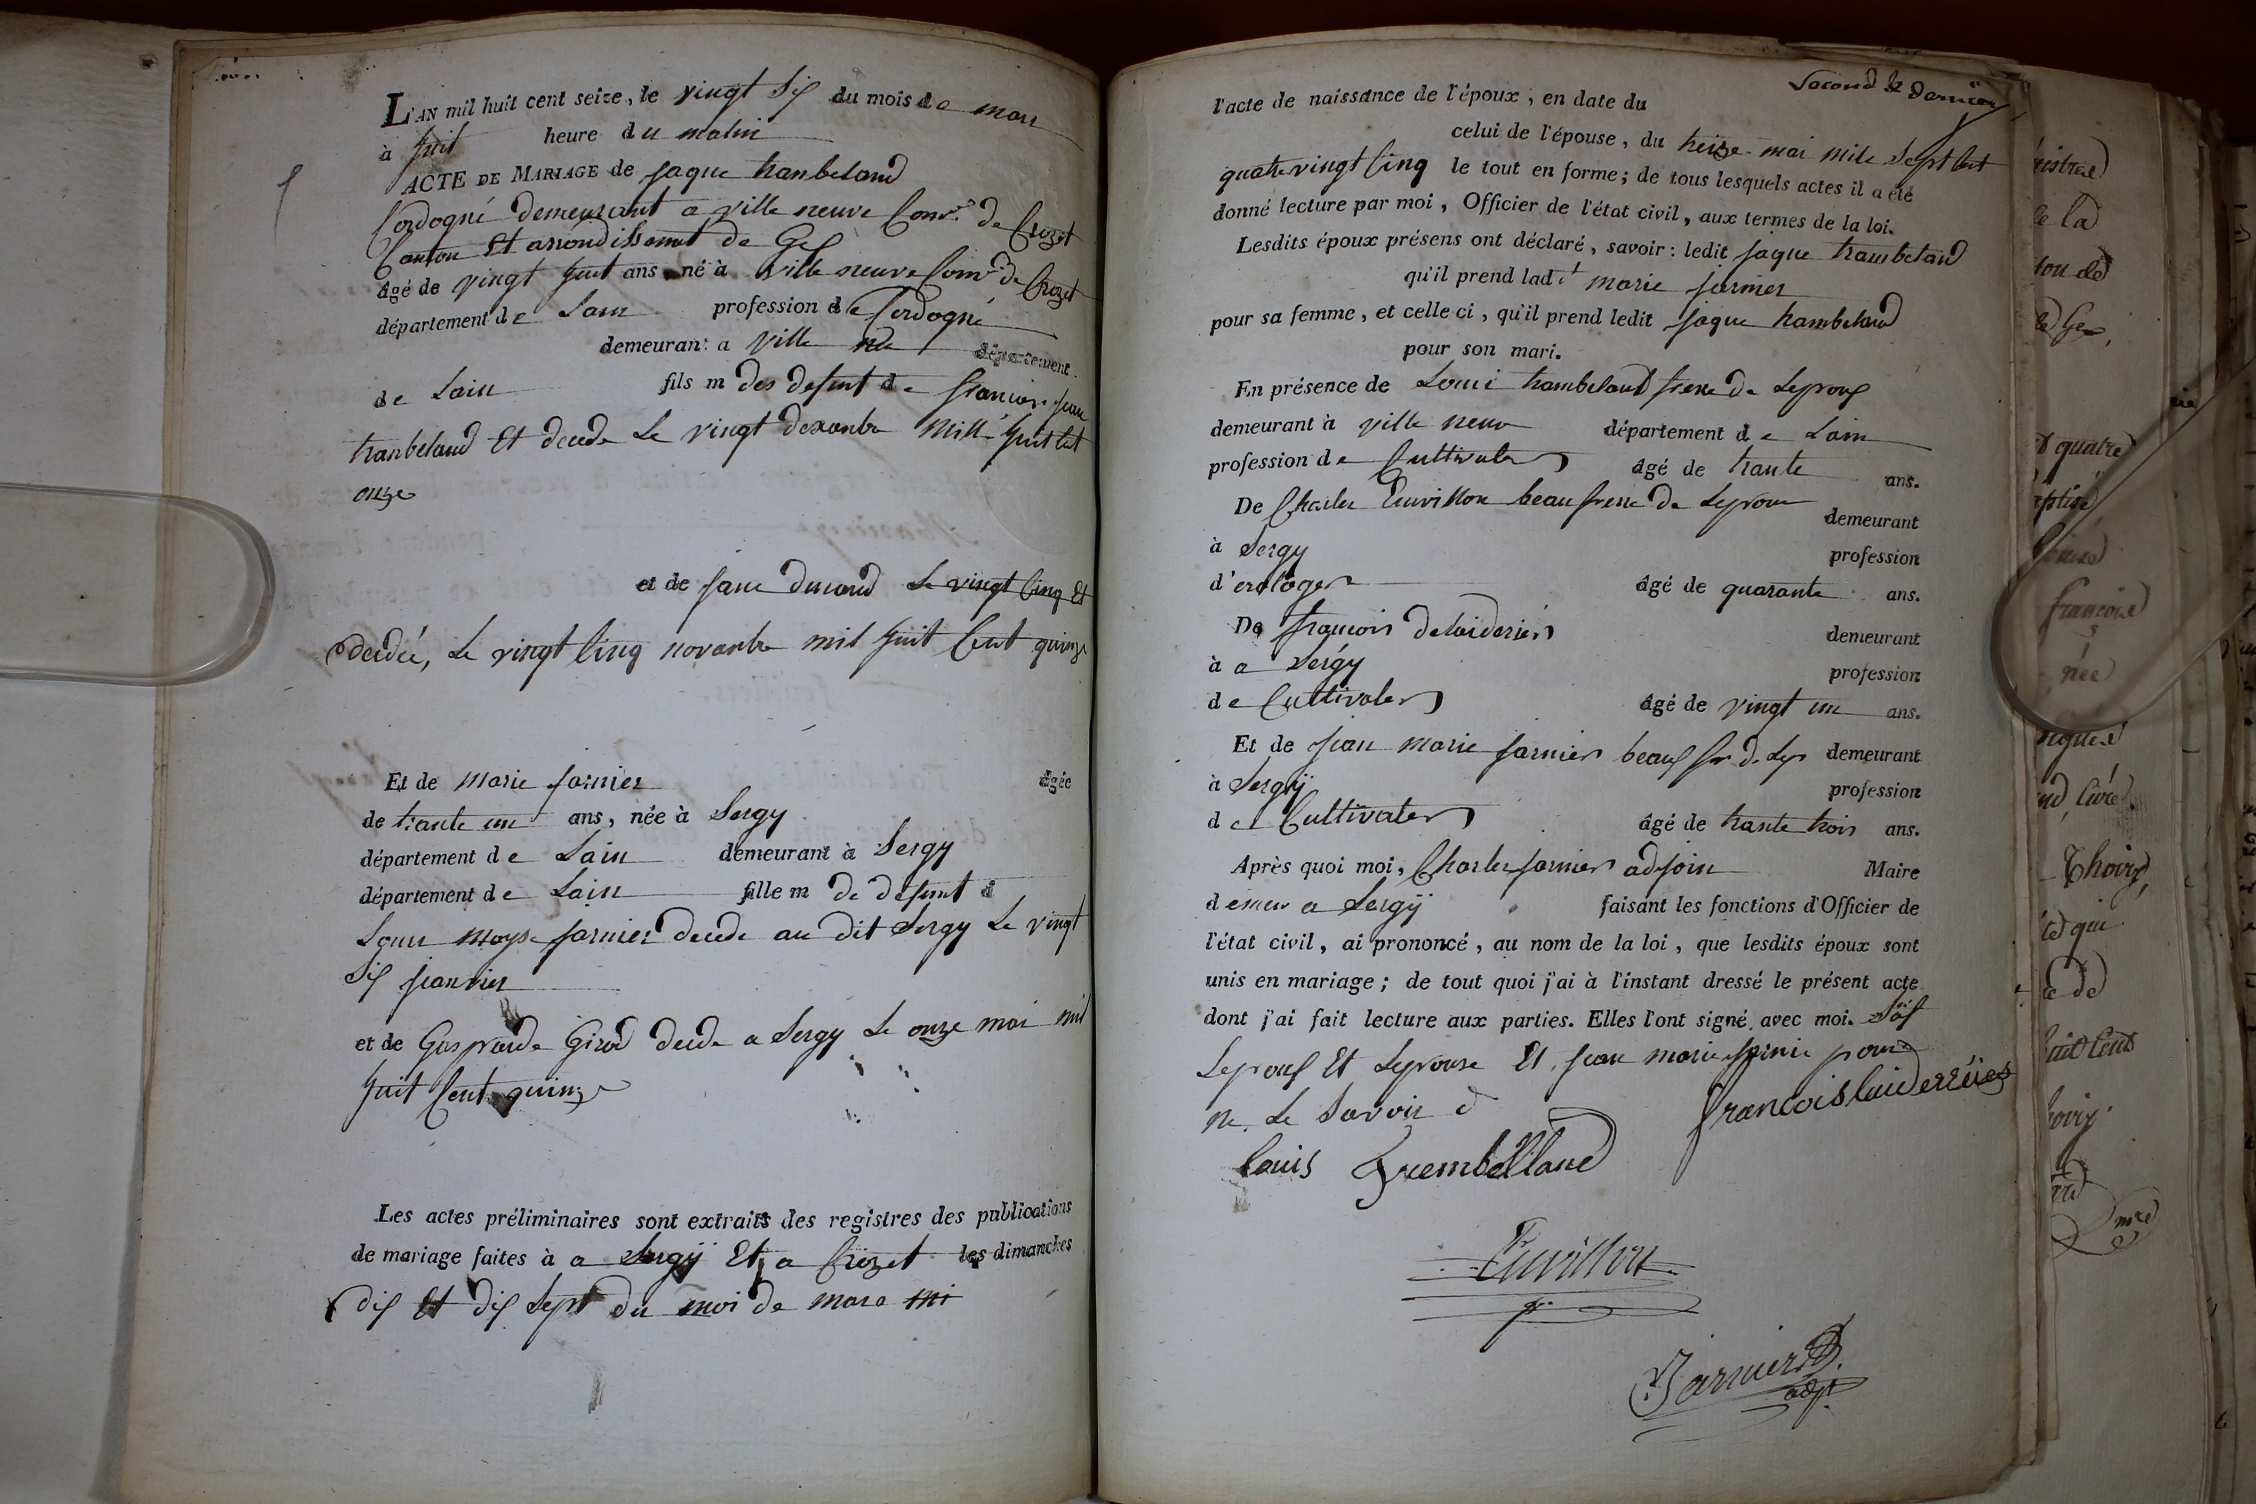 L'AN mil huit cent seize, le vingt Six du mois de mars
à huit heure du matin
ACTE DE MARIAGE de jaque tranbeland
Cordogné demeurant a ville neuve Com.ne de Crozet
Canton Et arrondissemt de Gex
âgé de vingt huit ans né à ville neuve Com.ne de Crozet
département de Lain profession de Cordogné
demeurant a ville département
de Lain fils m des defunt de francois jean
tranbeland Et decede Le vingt dexanbre mille huit Cent
onze
et de jane durand Le vingt Cinq Et
decdée, Le vingt Cinq novanbre mil huit Cent quinze
Et de marie farnier âgée
de trante un ans, née à Sergy
département de Lain demeurant à Sergy
département de Lain fille m de defunt d
Louis moyse farnier decede au dit Sergy Le vingt
Six janvier
et de Gasparde Girod decede a Sergy Le onze mai mil
huit Cent quinze
Les actes préliminaires sont extraits des registres des publications
de mariage faites à a Sergÿ Et a Crozet les dimanches
dix Et dix Sept du moi de mars mi
Second & dernier
l'acte de naissance de l'époux, en date du
celui de l'épouse, du treize mai mile Sept Cent
quatre vingt Cinq le tout en forme; de tous lesquels actes il a été
donné lecture par moi, Officier de l'état civil, aux termes de la loi.
Lesdits époux présens ont déclaré, savoir: ledit jaque trambeland
qu'il prend ladt marie farnier
pour sa femme, et celle ci, qu'il prend ledit jaque trambeland
pour son mari.
En présence de Loui trambeland frere de Lepoux
demeurant à ville neuve département de Lain
profession de Cultivater âgé de trante ans.
De Charles Cuvillon beau frere de Lepouse demeurant
à Sergy profession
d'orologer âgé de quarante ans.
De francois delaiderier demeurant
à a Sergy profession
de Cultivater âgé de vingt un ans.
Et de jean marie farnier beaux fr de Lep demeurant
à Sergÿ profession
de Cultivater âgé de trante trois ans.
Après quoi moi, Charles farnier adjoin Maire
demeur a Sergÿ faisant les fonctions d'Officier de
l'état civil, ai prononcé, au nom de la loi, que lesdits époux sont
unis en mariage; de tout quoi j'ai à l'instant dressé le présent acte
dont j'ai fait lecture aux parties. Elles l'ont signé avec moi. Sof
Lepoux Et Lepouse Et jean marie farnie pour
ne Le Savoir
francois laiderriéres
Louis Trembelland
Cuvillon
Farnier
adjt